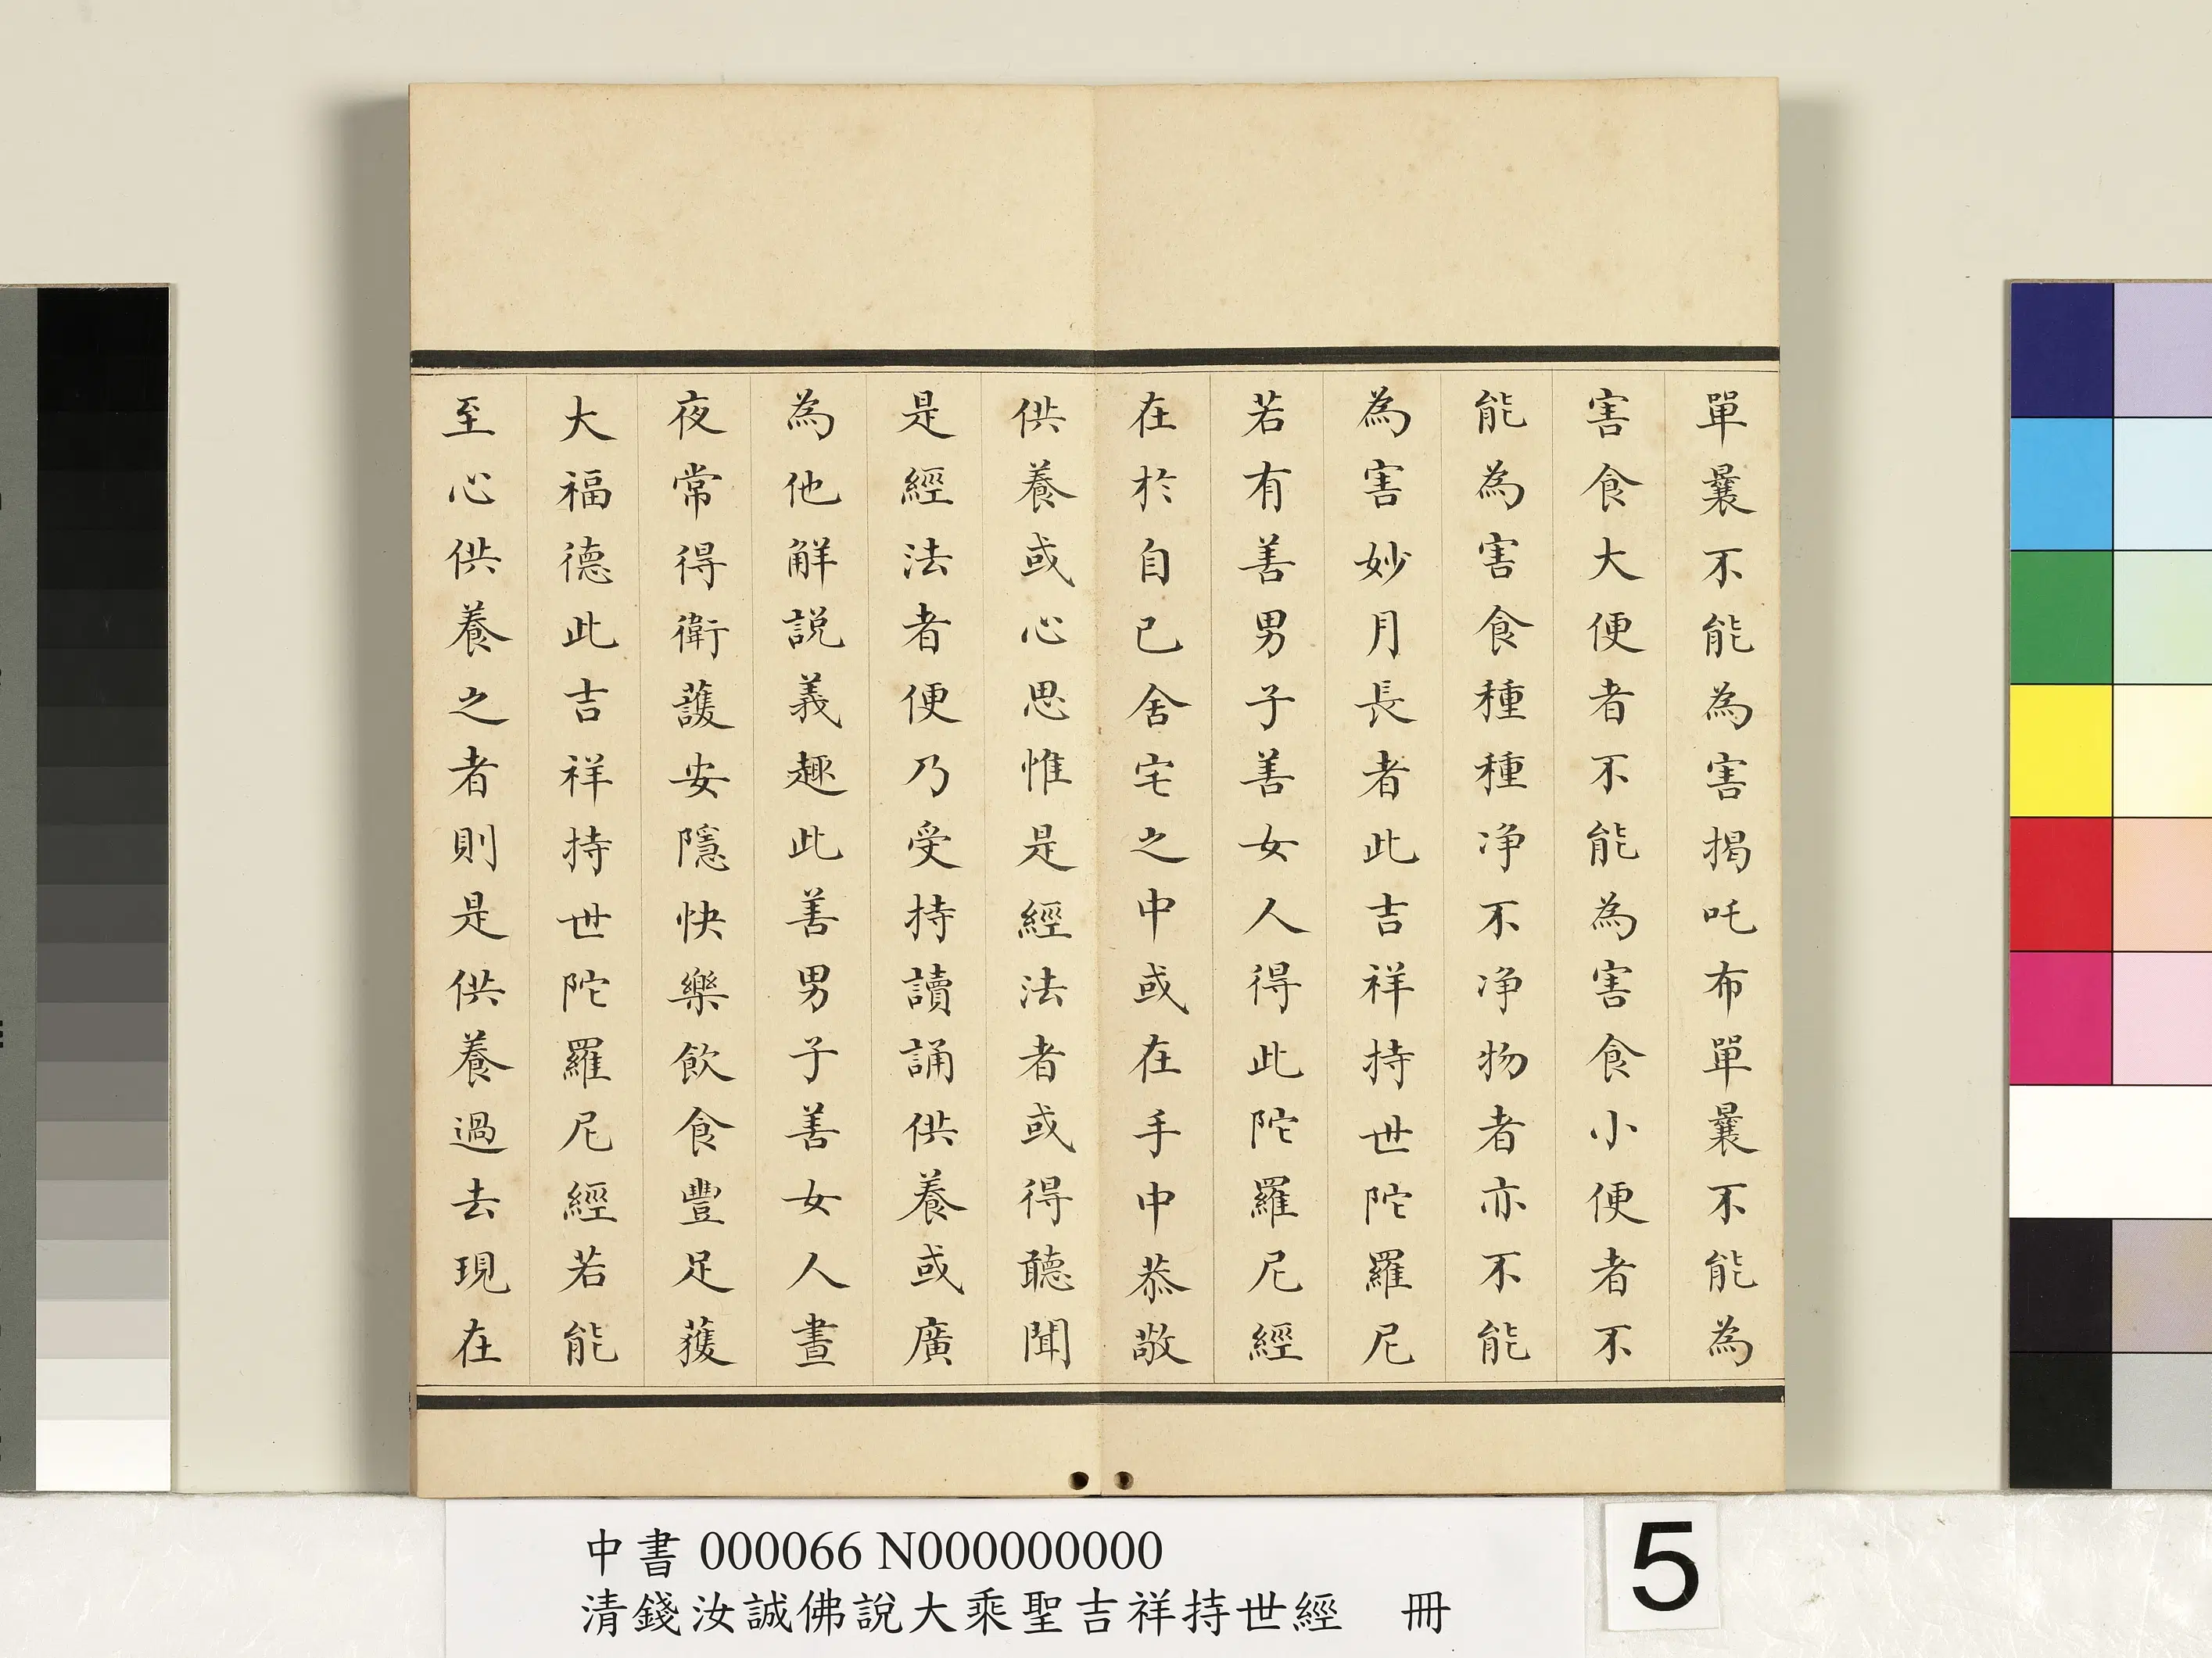 單曩不能為害揭吒布單曩不能為
害食大便者不能為害食小便者不
能為害食種種淨不淨物者亦不能
為害妙月長者此吉祥持世陀羅尼
若有善男子善女人得此陀羅尼經
在於自己舍宅之中或在手中恭敬
供養或心思惟是經法者或得聽聞
是經法者便乃受持讀誦供養或廣
為他解說義趣此善男子善女人晝
夜常得衛護安隱快樂飲食豐足獲
大福德此吉祥持世陀羅尼經若能
至心供養之者則是供養過去現在
中書 000066 N000000000
清錢汝誠佛說大乘聖吉祥持世經 冊
5